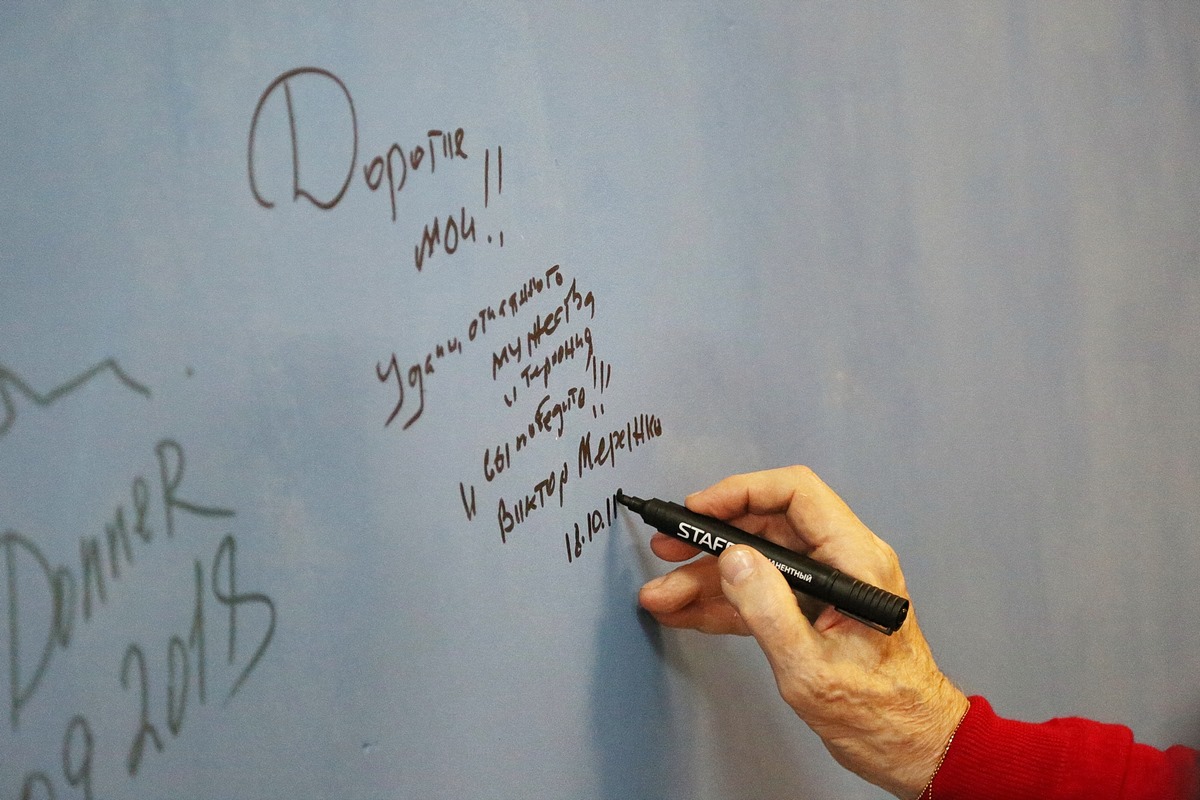 Дорогие
мои!!
Удачи, отчаянного
мужества
и терпения
и вы победите!!!
Виктор Мережко
16.10.1
Donner
09 2018
STAFF